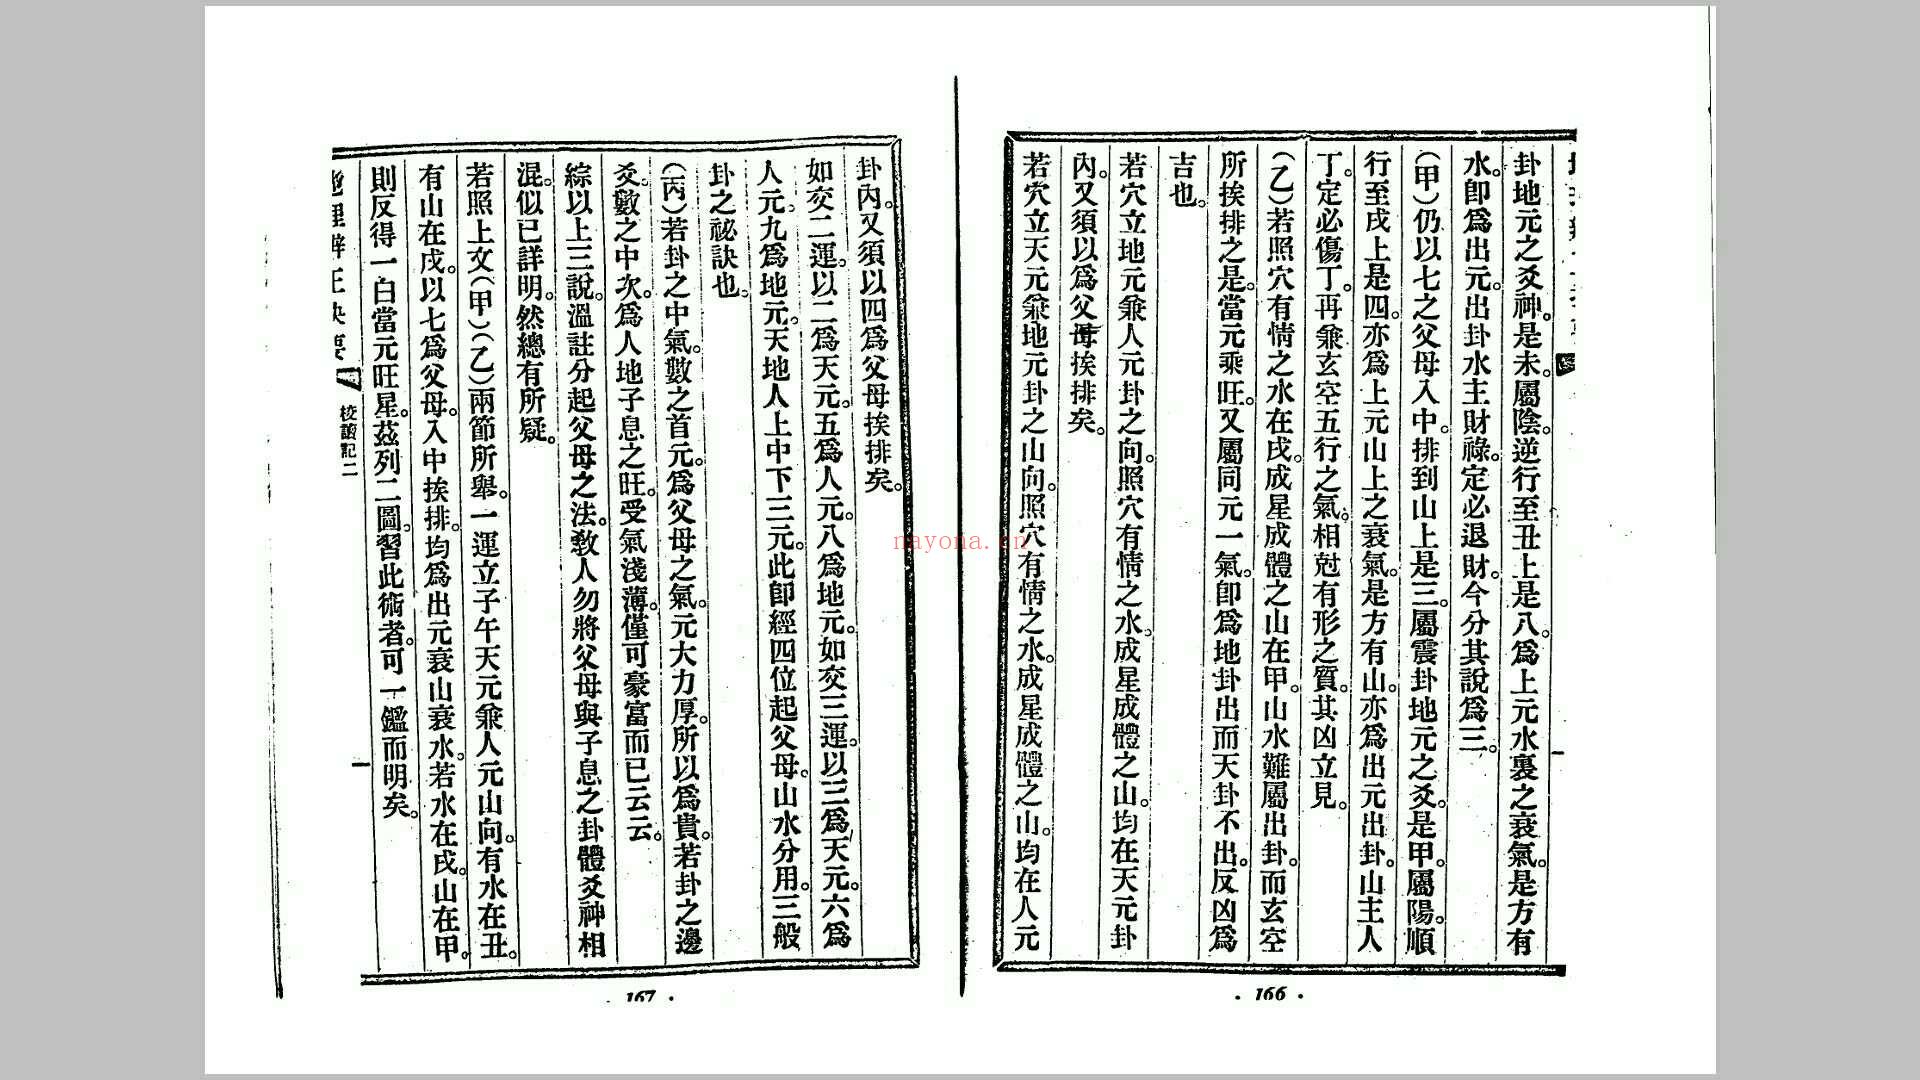 卦地元之爻神。是未。屬陰。逆行至丑上是八。爲上元水裏之衰氣。是方有
水。卽爲出元。出卦水主財祿。定必退財。今分其說爲三。
(甲)仍以七之父母入中。排到山上是三。屬震卦地元之爻。是甲。屬陽。順
行至戌上是四。亦爲上元山上之衰氣。是方有山。亦爲出元出卦。山主人
丁。定必傷丁。再兼玄空五行之氣。相尅有形之質。其凶立見。
(乙)若照穴有情之水在戌。成星成體之山在甲。山水難屬出卦。而玄空
所挨排之是。當元乘旺。又屬同元一氣。卽爲地卦出而天卦不出。反凶爲
吉也。
若穴立地元兼人元卦之向。照穴有情之水。成星成體之山。均在天元卦
內。又須以爲父母挨排矣。
若穴立天元兼地元卦之山向。照穴有情之水。成星成體之山。均在人元
卦內。又須以四爲父母挨排矣。
如交二運。以二爲天元。五爲人元。八爲地元。如交三運。以三爲天元。六爲
人元。九爲地元。天地人上中下三元。此卽經四位起父母。山水分用。三般
卦之祕訣也。
(丙)若卦之中氣。數之首元。爲父母之氣。元大力厚。所以爲貴。若卦之邊
爻。數之中次。爲人地子息之旺。受氣淺薄。僅可豪富而已云云。
綜以上三說。溫註分起父母之法。敎人勿將父母與子息之卦體爻神相
混。似已詳明。然總有所疑。
若照上文(甲)(乙)兩節所舉。一運立子午天元兼人元山向。有水在丑。
有山在戌。以七爲父母。入中挨排。均爲出元衰山衰水。若水在戌。山在甲。
則反得一白當元旺星。茲列二圖。習此術者。可一鑑而明矣。
地理辨正抉要
校讀記二
一
一
· 166 ·
· 167 ·
nayona.cn